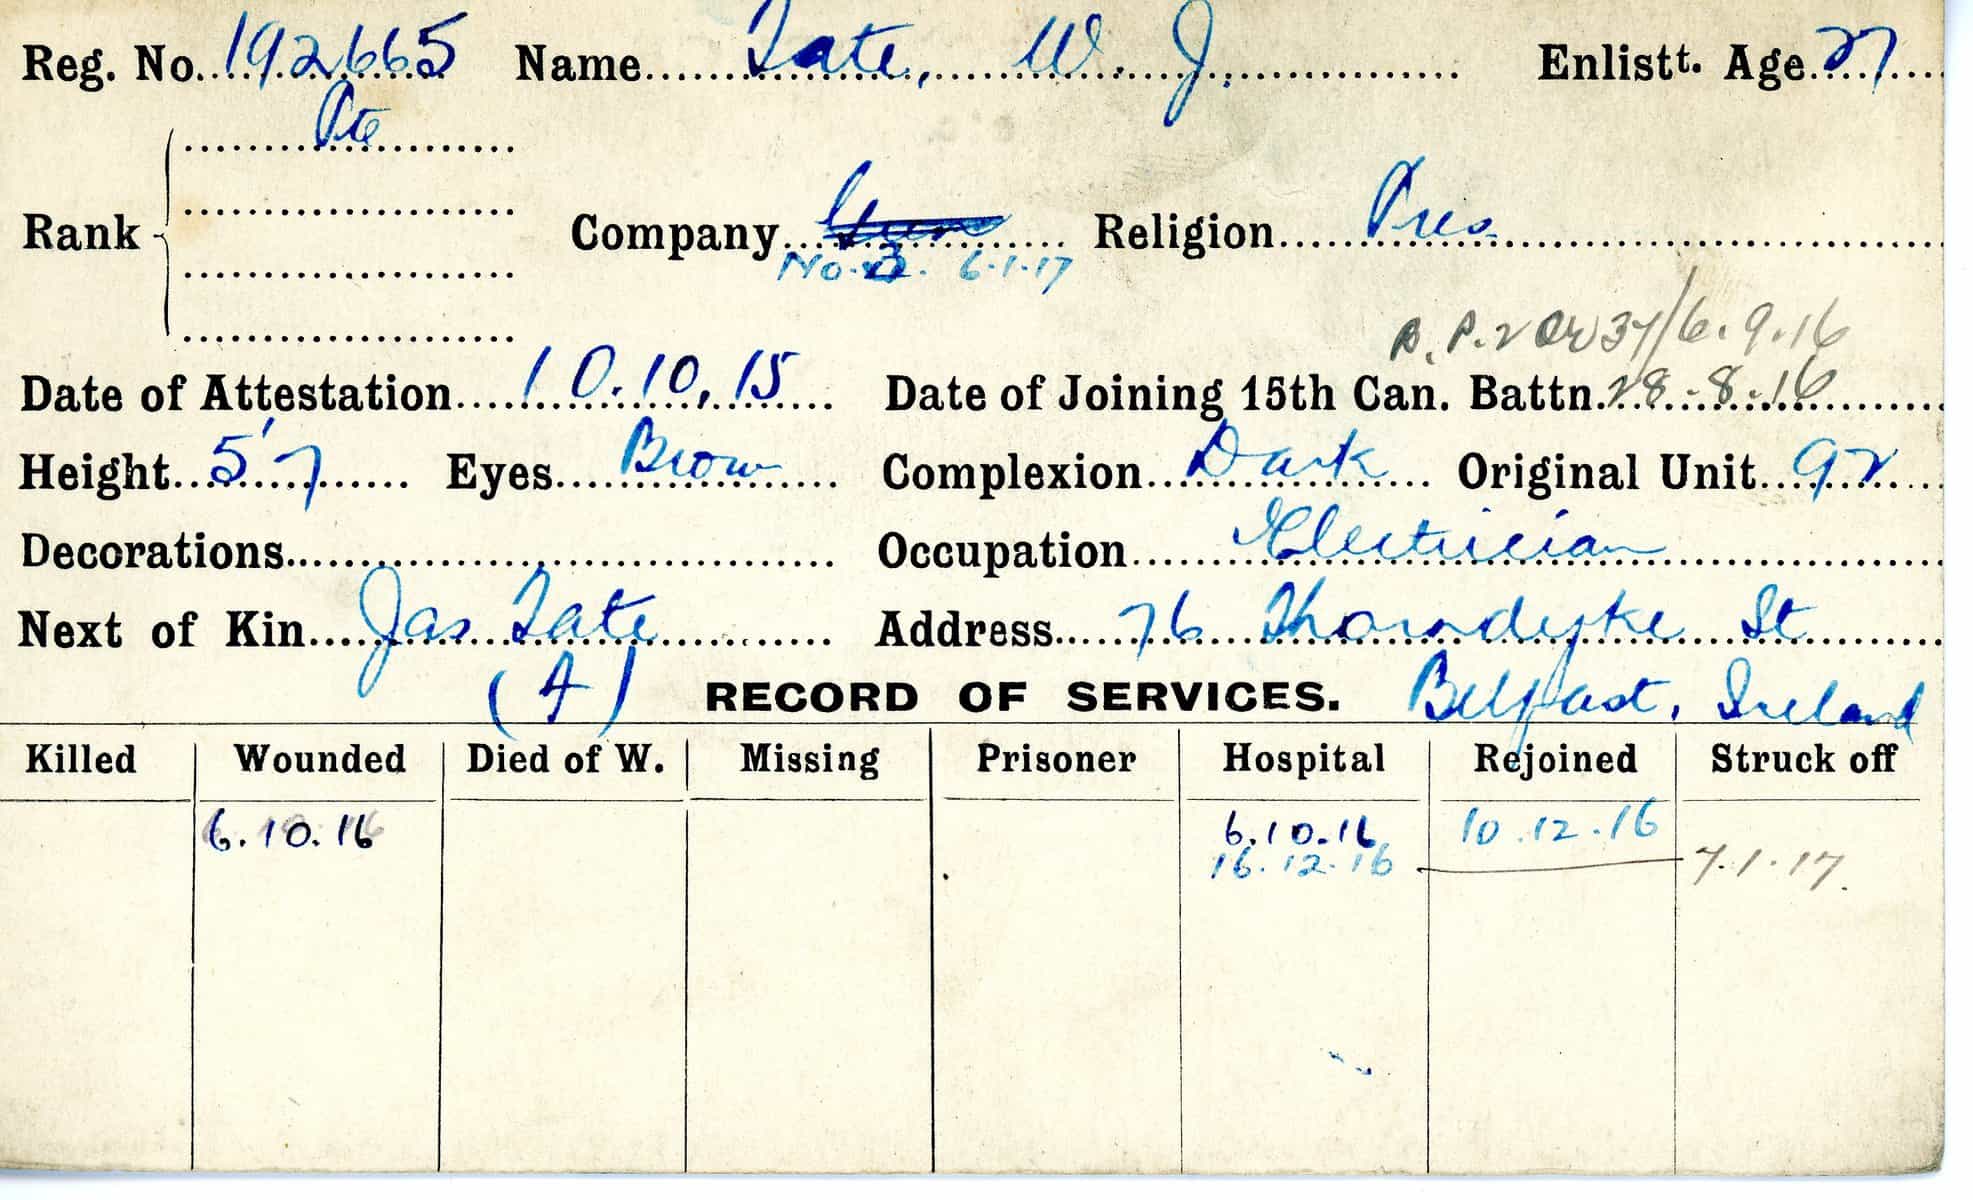 Reg. No. 192665 Name Tate, W. J. Enlistt. Age 27
Pte
Rank Company Religion Pres.
No. 2. 6.1.17
16.9.16
Date of Attestation 10.10.15 Date of Joining 15th Can. Battn. 28-8-16
Height 5'7 Eyes Brown Complexion Dark Original Unit 92
Decorations Occupation Electrician
Next of Kin Jas Tate Address 76 Thorndyke St
(4) RECORD OF SERVICES. Belfast, Ireland
Killed Wounded Died of W. Missing Prisoner Hospital Rejoined Struck off
6.10.16 6.10.16 10.12.16
16.12.16 7.1.17.